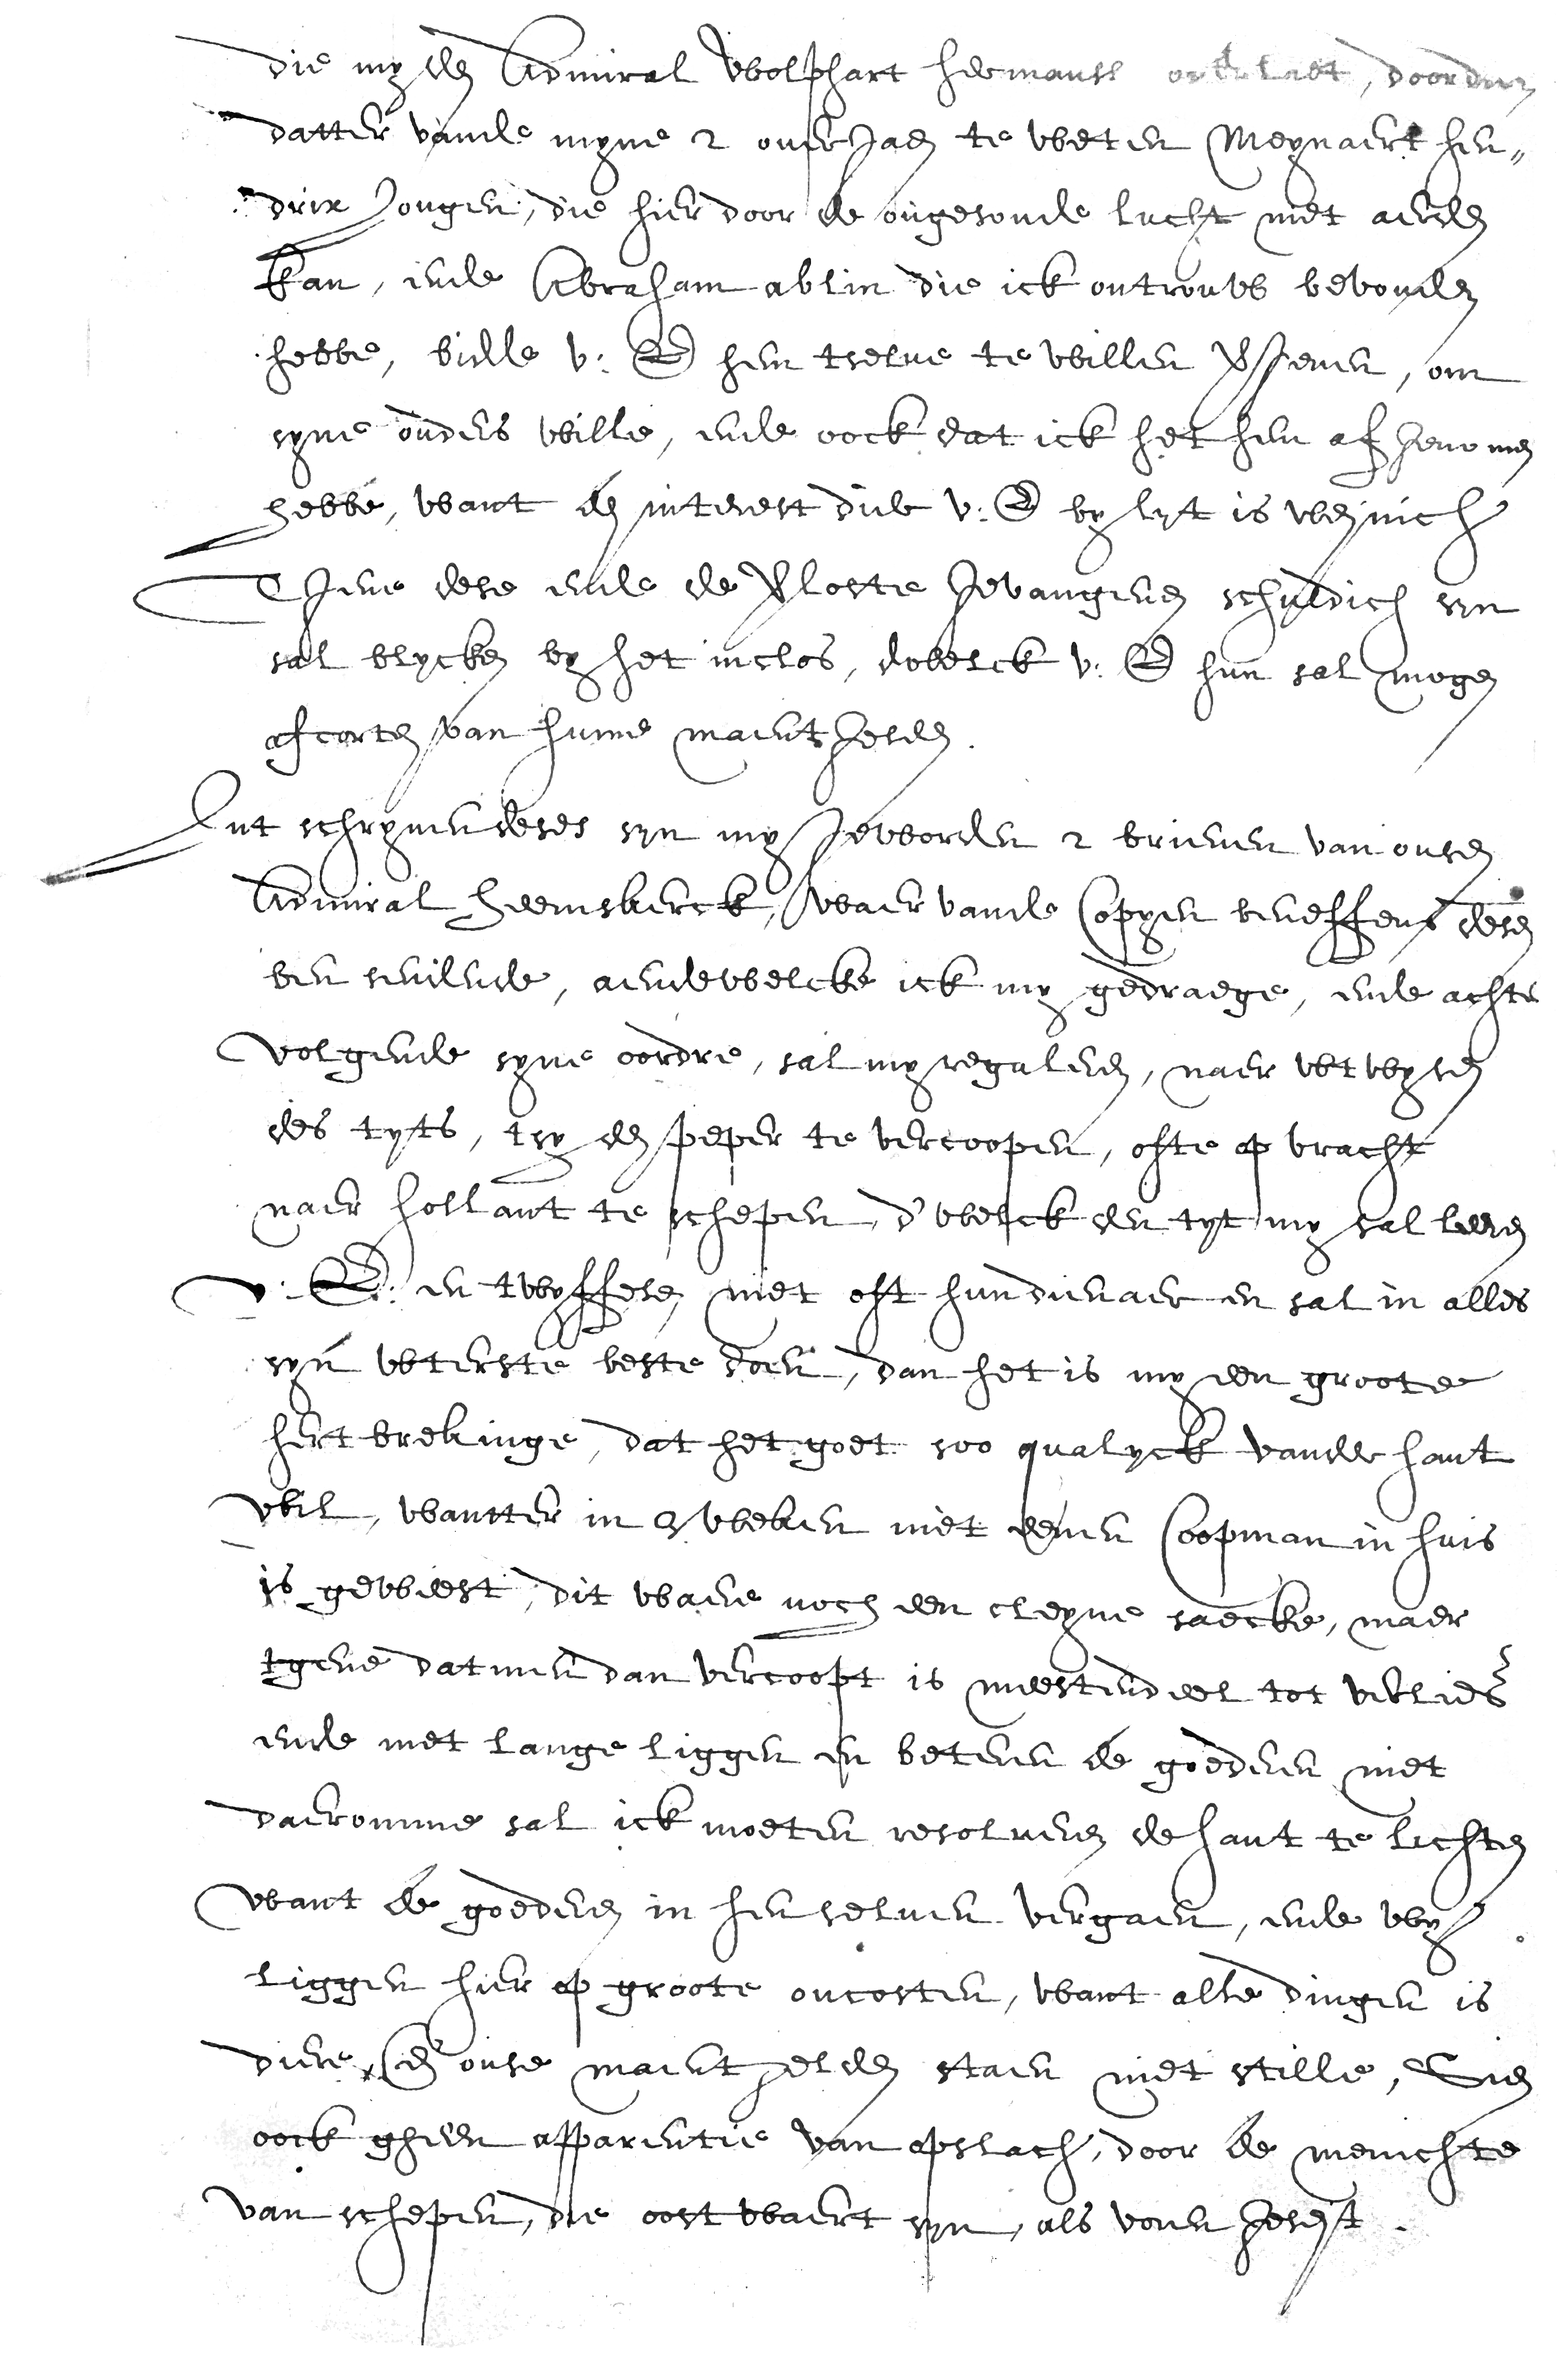 die my den Admiral Wolphart Hermansz , doordien
datter vande myne 2 over gaen te weten Meynaert Hen„
drix Jongen, die hier door de ongesonde lucht niet aerden
kan, ende Abraham ablin die ick ontrouw bevonden
hebbe, bidde v: E hem tselve te willen vergeven, om
syne ouders wille, ende oock dat ick het hem af genomen
hebbe, want den interest die v: E by lyt is weynich
Tgene dese ende de verloste gevangenen schuldich syn
sal blycken by het inclos, dwelck v: E hun sal mogen
afcorten van hunne maent gelden.
Int schryven deses syn my geworden 2 brieven van onsen
Admiral Heemskerck, waer vande Copyen beneffens desen
ben sendende, aendewelcke ick my gedraege, ende achter
volgende syne oordre, sal my reguleren, naer wtwysen
des tyts, tsy den peper te vercoopen, ofte op vracht
naer hollant te schepen, d'welck den tyt my sal leeren
v: E: en twyffelen niet oft hun dienaer en sal in alles
syn wterste beste doen, dan het is my een groote
hertbrekinge, dat het goet soo qualyck vander hant
wil, wantter in 3 weken niet eenen Coopman in huis
is geweest, dit waere noch een cleyne saecke, maer
tgene datmen dan vercoopt is meestendeel tot verlies
ende met lange liggen en beteren de goederen niet
daeromme sal ick moeten resolveren de hant te lichten
want de goederen in hen selven vergaen, ende wy
liggen hier op groote oncosten, want alle dingen is
diere, en onse maent gelden staen niet stille, Sien
oock gheen apparentie van opslach, door de menichte
van schepen, die oostwaert syn, als voren geseyt.